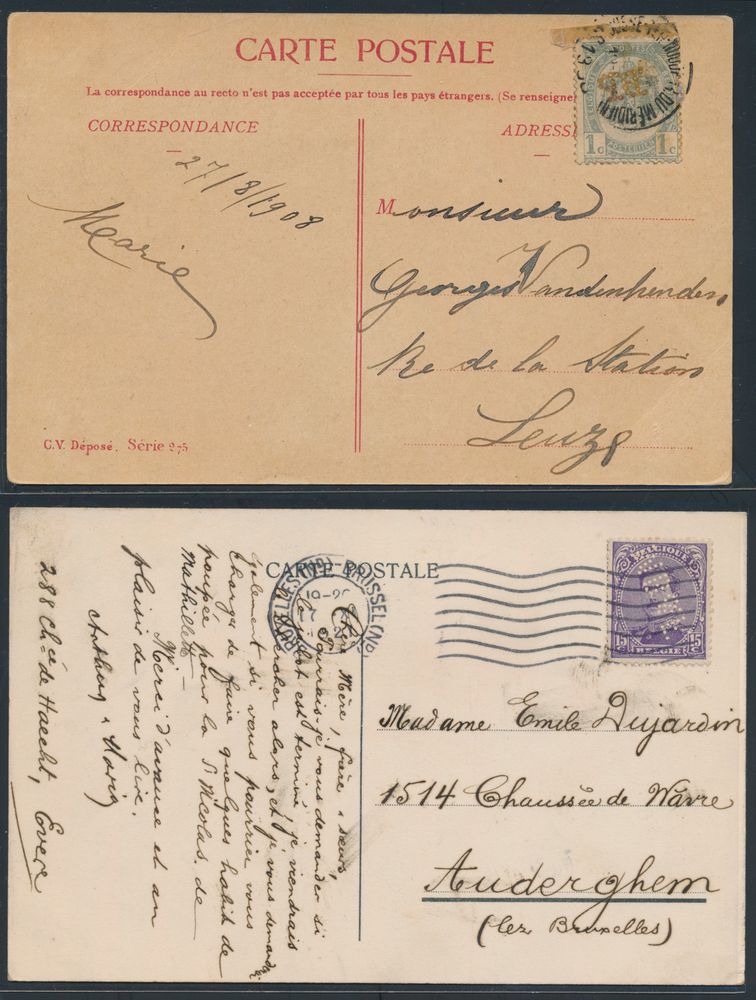 CARTE POSTALE
La correspondance au recto n'est pas acceptée par tous les pays étrangers. (Se renseigne
CORRESPONDANCE
ADRESS
1c POSTERIJEN 1c
DU MÉRIDIEN
27/8/1908
Marie
Monsieur
Georges Vandenhenden
Re de la Station
Leuze
C.V. Déposé. Série 275
CARTE POSTALE
BRUXELLES (ND) BRUSSEL (ND)
BELGIQUE
15 BELGIË 15
Chers Mère, frère & sœurs,
Pourrais-je vous demander si
le est terminé, je viendrais
le chercher alors, et je vous demande
également si vous pourriez vous
charger de faire quelques habits de
poupée pour la St Nicolas de
Mathilde
Merci d'avance et au
plaisir de vous lire.
Anthony & Marie
288 Chée de Haecht, Evere
Madame Emile Dujardin
1514 Chaussée de Wavre
Auderghem
(lez Bruxelles)